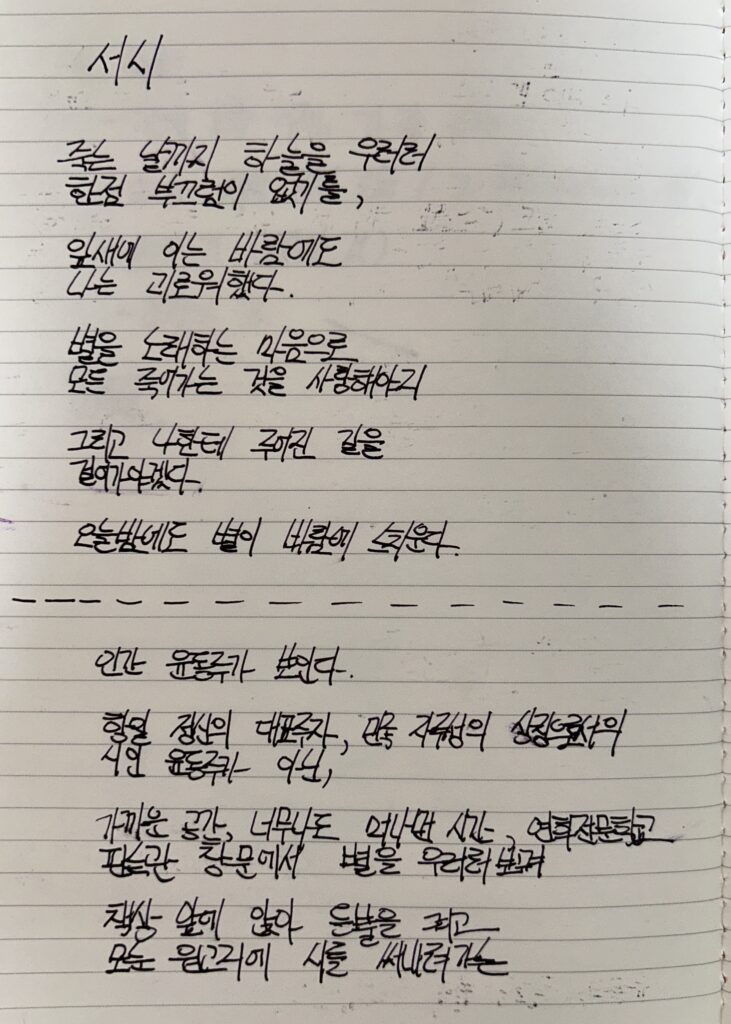 서시
죽는 날까지 하늘을 우러러
한점 부끄럼이 없기를,
잎새에 이는 바람에도
나는 괴로워했다.
별을 노래하는 마음으로
모든 죽어가는 것을 사랑해야지
그리고 나한테 주어진 길을
걸어가야겠다.
오늘밤에도 별이 바람에 스치운다.
인간 윤동주가 보인다.
항일 정신의 대표주자, 민족 자주성의 상징으로서의
시인 윤동주가 아닌,
가까운 공간, 너무나도 머나먼 시간, 연희전문학교
핀슨관 창문에서 별을 우러러보며
책상 앞에 앉아 등불을 그리고
모눈 원고지에 시를 써내려가는